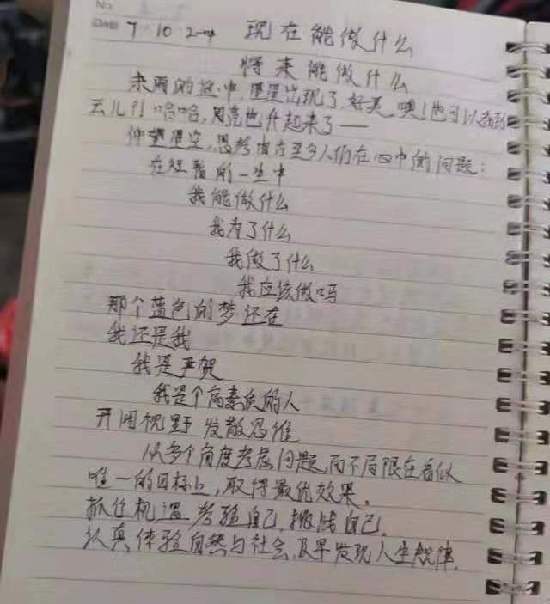 No.
Date 7 10 2
现在能做什么
将来能做什么
来雨的 中,星星出现了,好美,噢!也可以看到
云儿们 哈哈,月亮也升起来了——
仰望星空,思考 在 多人们在心中的问题:
在短暂的一生中
我能做什么
我为了什么
我做了什么
我应该做吗
那个蓝色的梦还在
我还是我
我是严贺
我是个高素质的人
开阔视野 发散思维
从多个角度考虑问题,而不局限在看似
唯一的目标上,取得最优效果。
抓住机遇 考验自己,挑战自己。
认真体验自然与社会,及早发现人生规律。